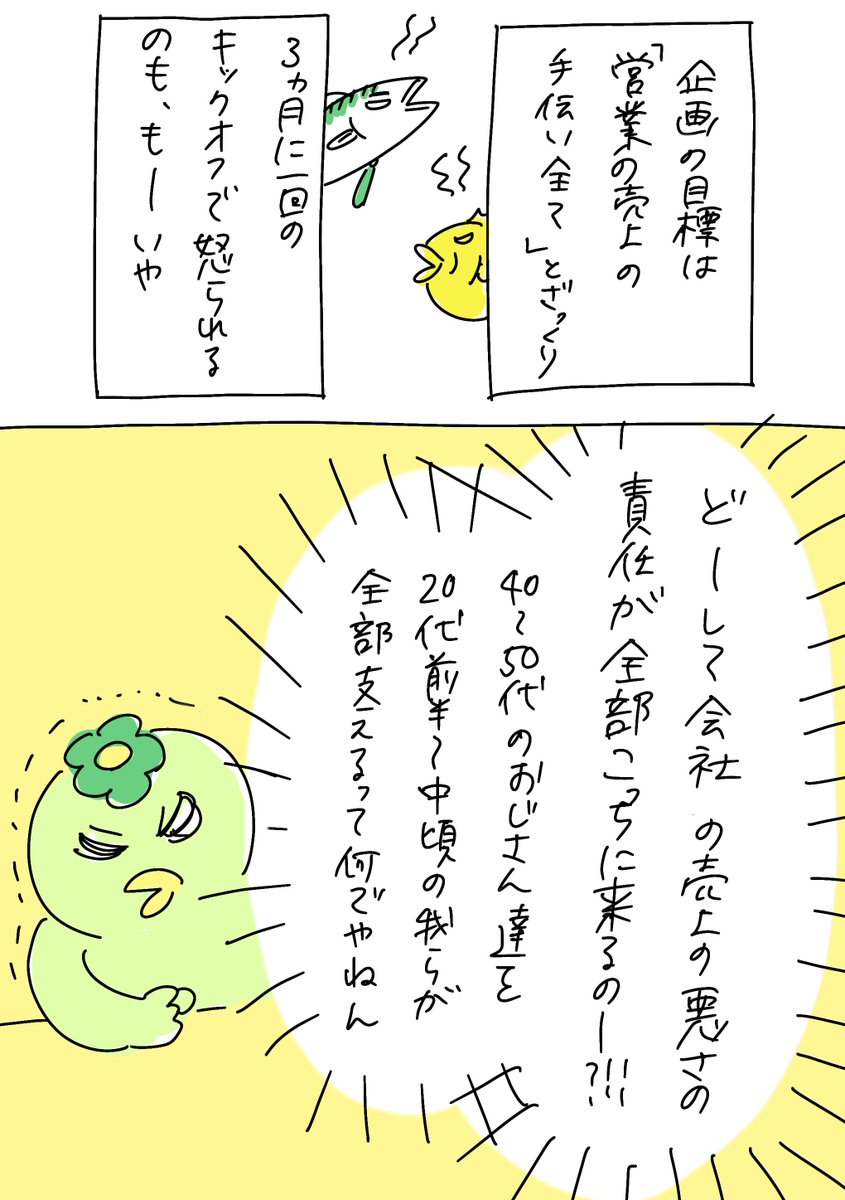 企画の目標は
「営業の売上の
手伝い全て」とざっくり
3ヵ月に一回の
キックオフで怒られる
のも、もーいや
どーして会社の売上の悪さの
責任が全部こっちに来るのー?!!!
40〜50代のおじさん達を
20代前半〜中頃の我らが
全部支えるって何でやねん